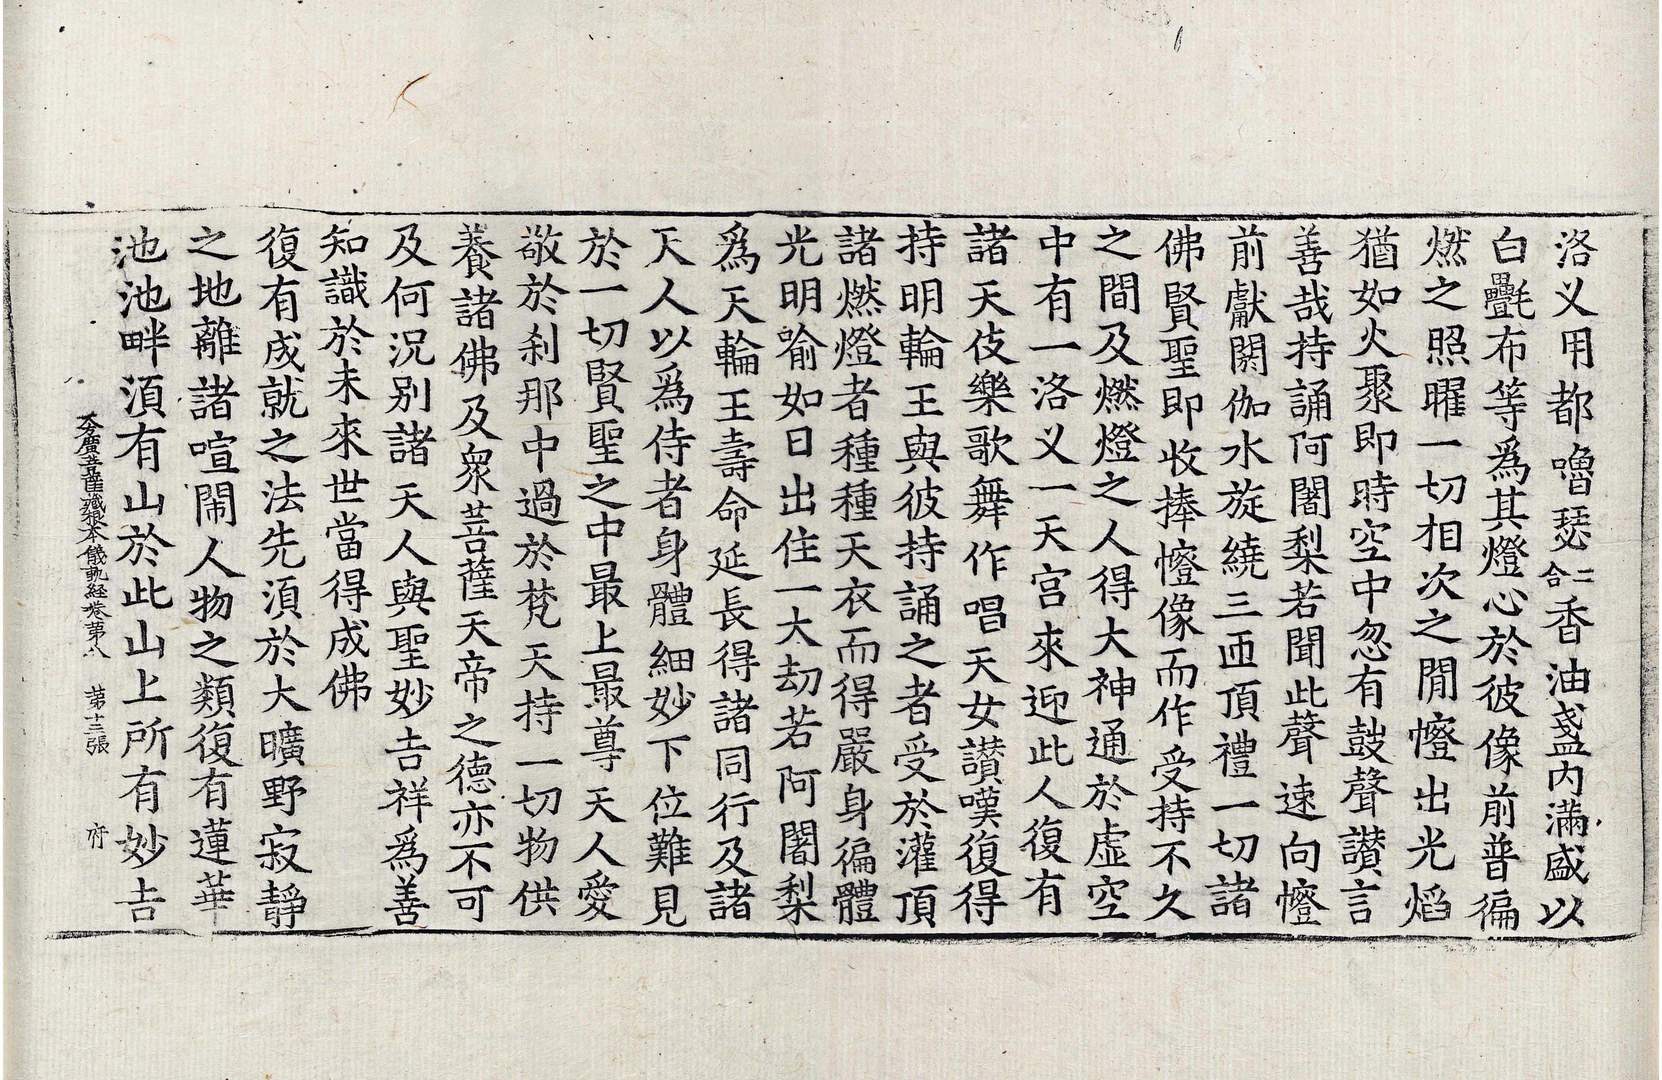 洛义用都嚕瑟二合香油盞盞内滿盛以
白㲲布等爲其燈心於彼像前普徧
燃之照曜一切相次之閒㡧出光焰
猶如火聚即時空中忽有鼓聲讃言
善哉持誦阿闍梨若聞此聲速向㡧
前獻閼伽水旋繞三匝頂禮一切諸
佛賢聖即收捧㡧像而作受持不久
之間及燃燈之人得大神通於虛空
中有一洛义一天宫來迎此人復有
諸天伎樂歌舞作唱天女讃嘆復得
持明輪王與彼持誦之者受於灌頂
諸燃燈者種種天衣而得嚴身徧體
光明喻如日出住一大劫若阿闍梨
爲天輪王壽命延長得諸同行及諸
天人以爲侍者身體細妙下位難見
於一切賢聖之中最上最尊天人愛
敬於刹那中過於梵天持一切物供
養諸佛及衆菩薩天帝之德亦不可
及何況别諸天人與聖妙吉祥爲善
知識於未來世當得成佛
復有成就之法先湏於大曠野寂靜
之地離諸喧鬧人物之類復有蓮華
池池畔湏有山於此山上所有妙吉
大廣菩薩藏根本儀軌經卷第八 第十三張 府